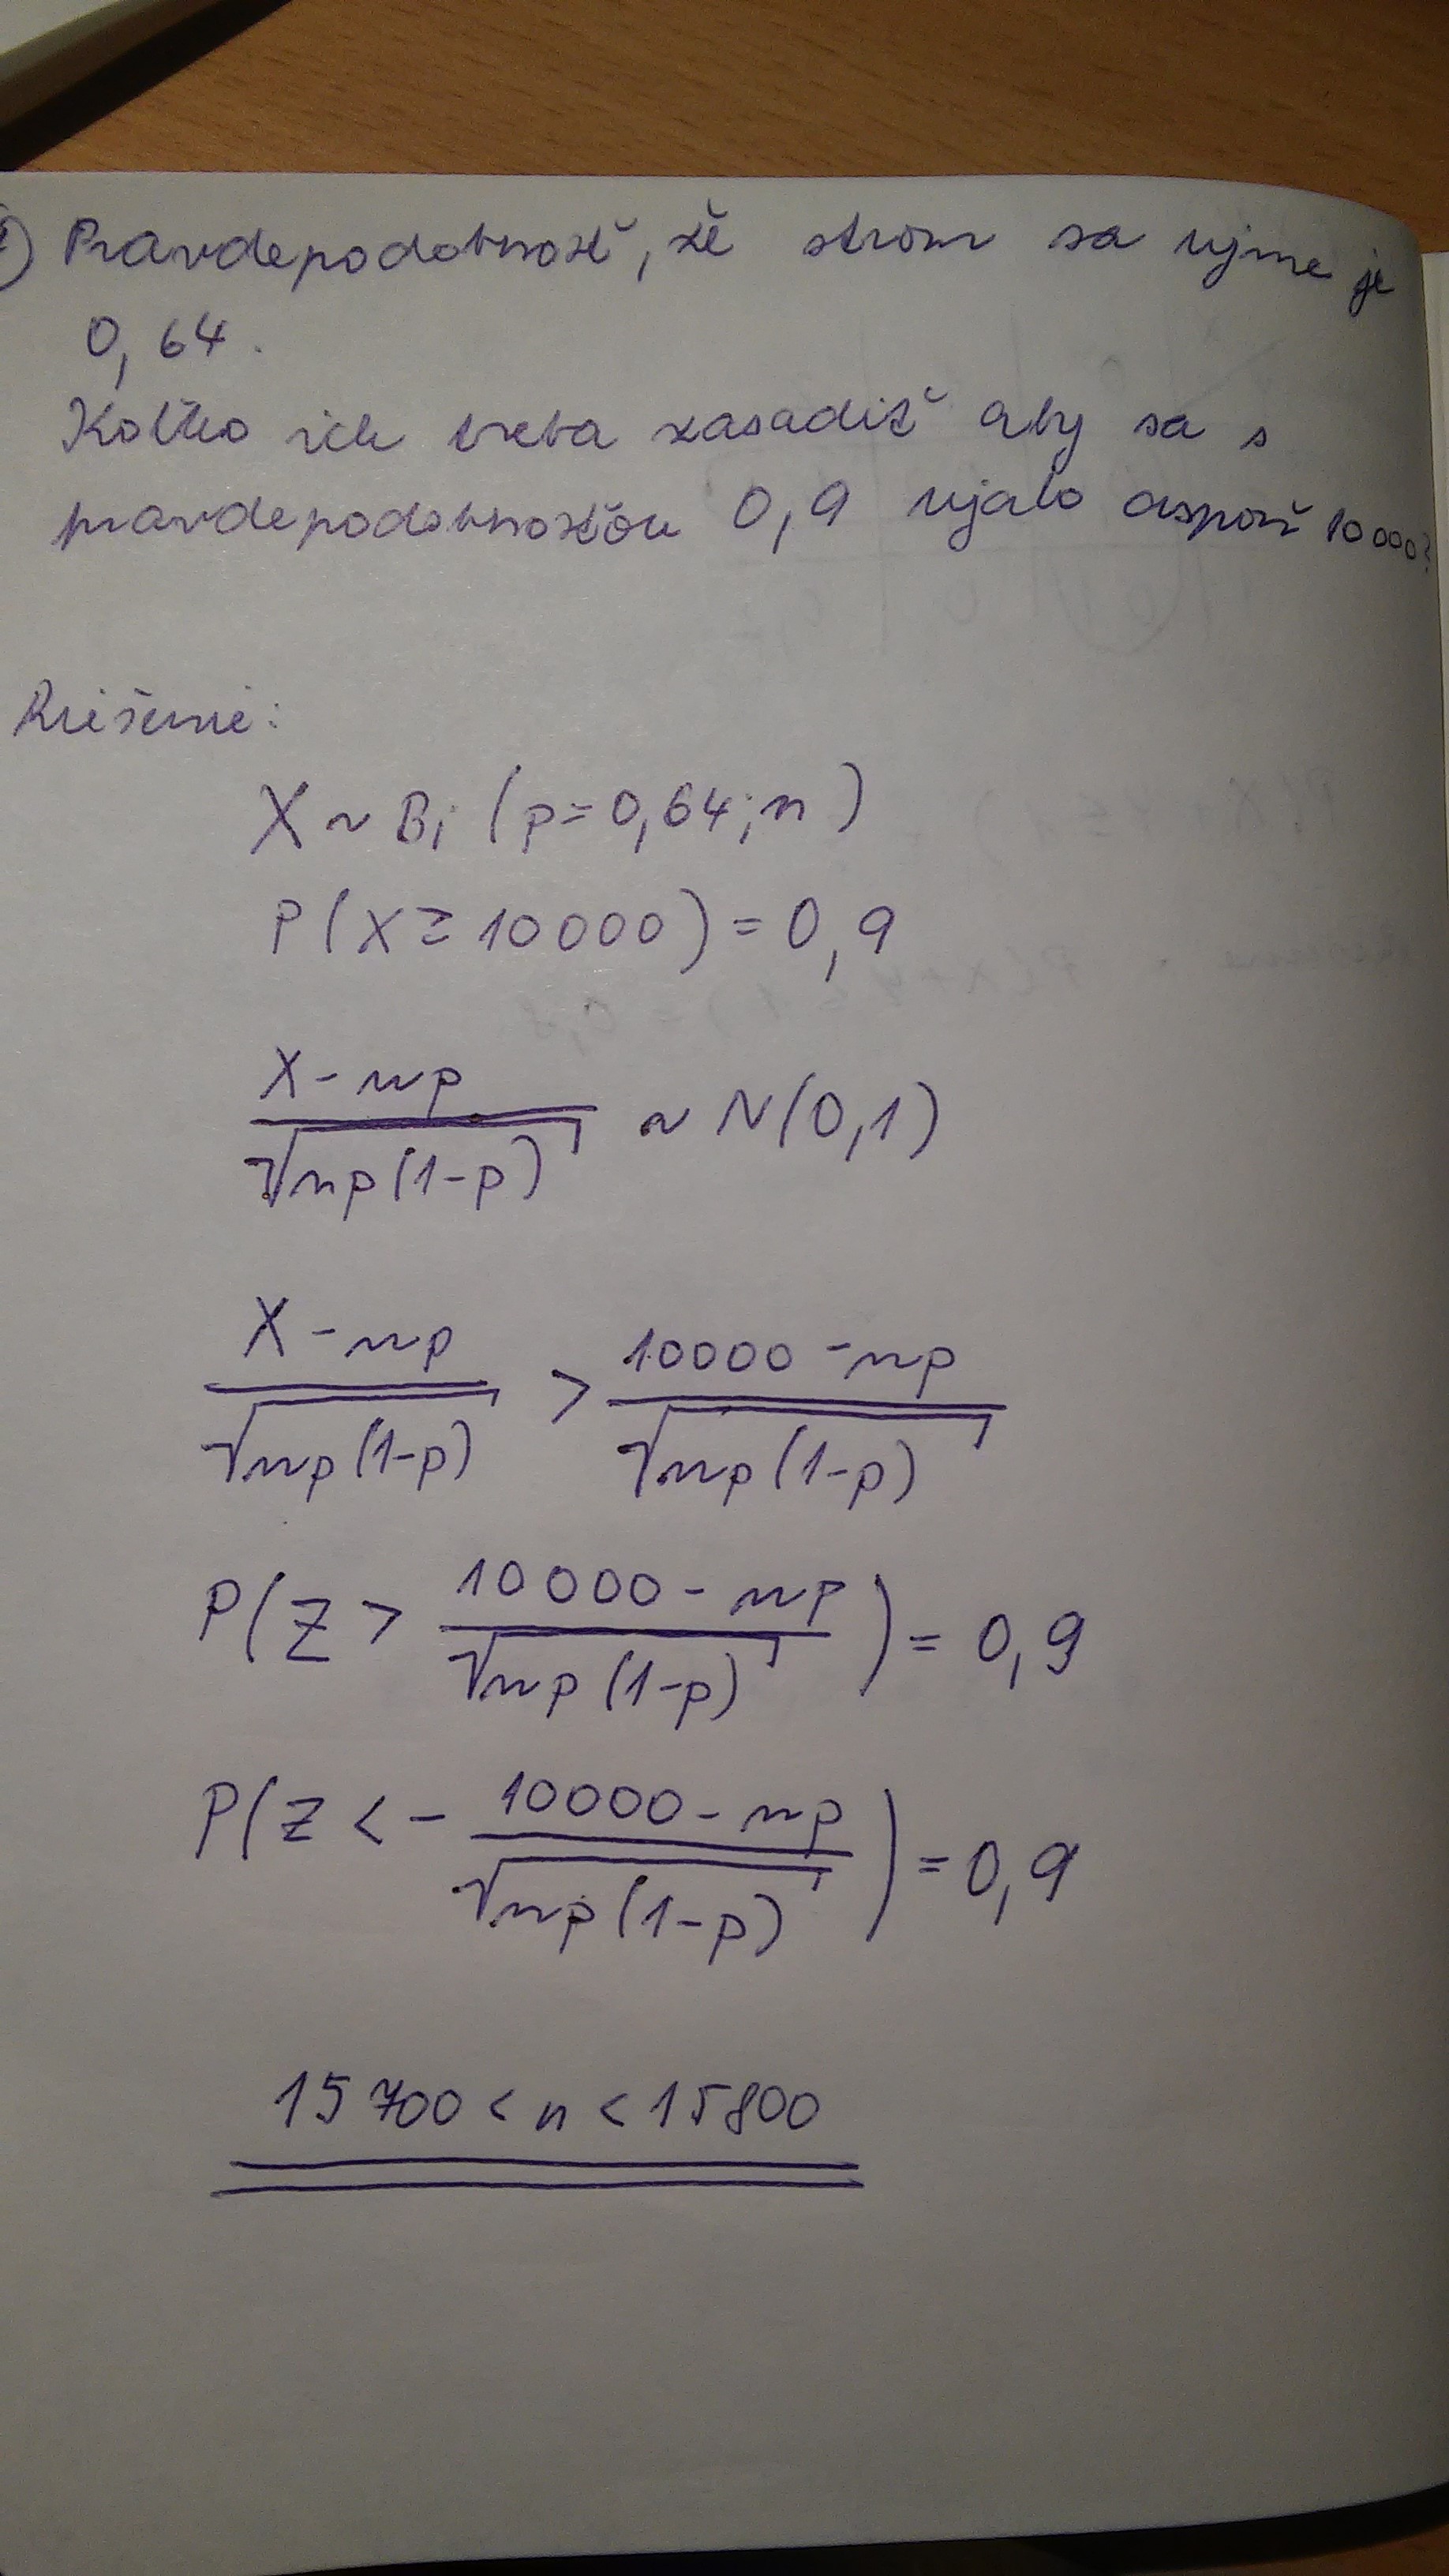 Pravdepodobnosť, že strom sa ujme je
0,64.
Koľko ich treba zasadiť aby sa s
pravdepodobnosťou 0,9 ujalo aspoň 10000?
Riešenie:
X ~ Bi (p=0,64; n)
P(X ≥ 10000) = 0,9
(X - np) / √(np(1-p)) ~ N(0,1)
(X - np) / √(np(1-p)) > (10000 - np) / √(np(1-p))
P(Z > (10000 - np) / √(np(1-p))) = 0,9
P(Z < - (10000 - np) / √(np(1-p))) = 0,9
15700 < n < 15800